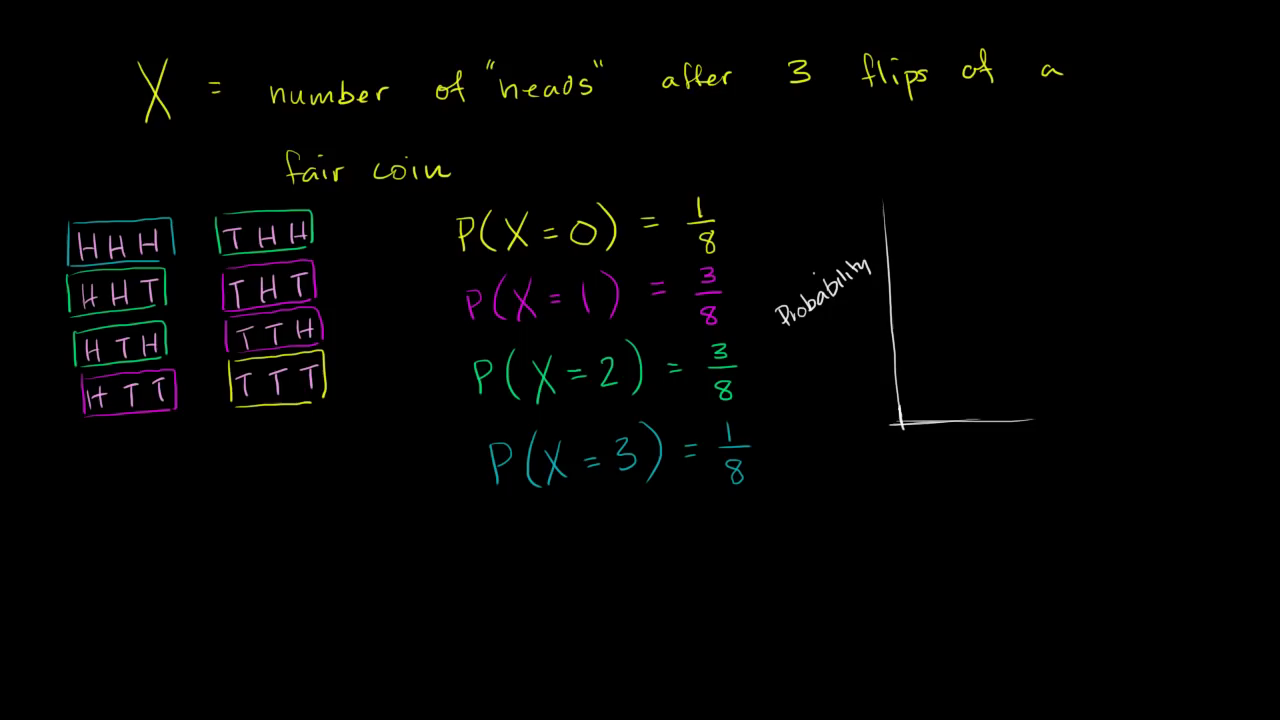 X = number of "heads" after 3 flips of a
fair coin
HHH THH
HHT THT
HTH TTH
HTT TTT
P(X=0) = 1/8
P(X=1) = 3/8
P(X=2) = 3/8
P(X=3) = 1/8
Probability